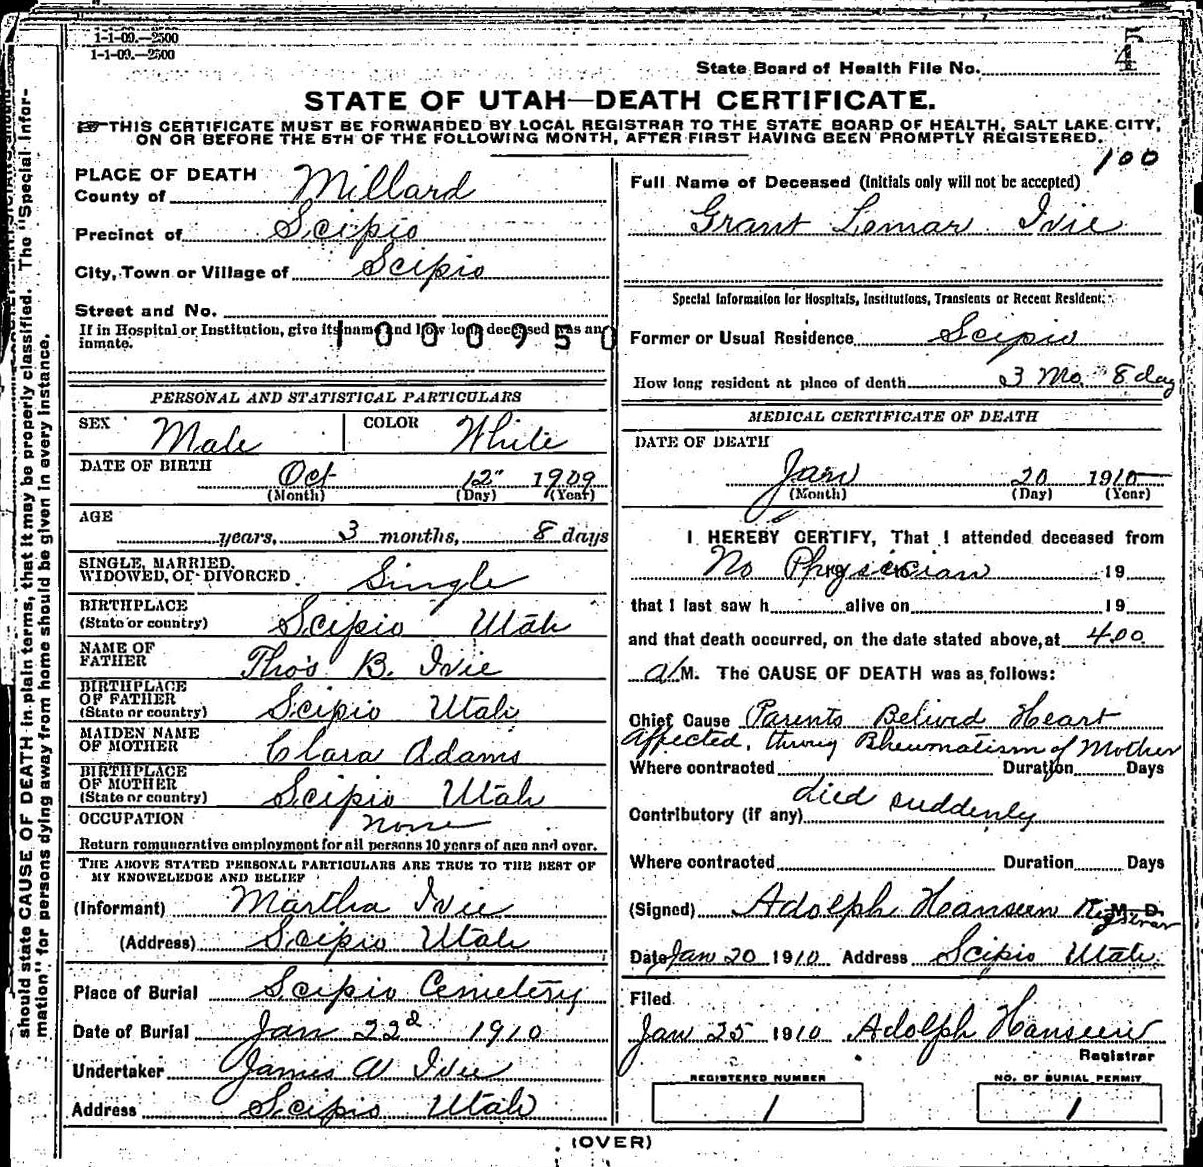 1-1-09.—2500
1-1-09.—2500
State Board of Health File No.
STATE OF UTAH—DEATH CERTIFICATE.
THIS CERTIFICATE MUST BE FORWARDED BY LOCAL REGISTRAR TO THE STATE BOARD OF HEALTH, SALT LAKE CITY,
ON OR BEFORE THE 5TH OF THE FOLLOWING MONTH, AFTER FIRST HAVING BEEN PROMPTLY REGISTERED.
should state CAUSE OF DEATH in plain terms, that it may be properly classified. The "Special Infor-
mation" for persons dying away from home should be given in every instance.
PLACE OF DEATH
County of Millard
Precinct of Scipio
City, Town or Village of Scipio
Street and No.
If in Hospital or Institution, give its name and how long deceased was an
inmate.
1000950
PERSONAL AND STATISTICAL PARTICULARS
SEX Male COLOR White
DATE OF BIRTH Oct 12" 1909
(Month) (Day) (Year)
AGE
years, 3 months, 8 days
SINGLE, MARRIED,
WIDOWED, OR DIVORCED Single
BIRTHPLACE
(State or country) Scipio Utah
NAME OF
FATHER Thos B. Ivie
BIRTHPLACE
OF FATHER
(State or country) Scipio Utah
MAIDEN NAME
OF MOTHER Clara Adams
BIRTHPLACE
OF MOTHER
(State or country) Scipio Utah
OCCUPATION none
Return remunerative employment for all persons 10 years of age and over.
THE ABOVE STATED PERSONAL PARTICULARS ARE TRUE TO THE BEST OF
MY KNOWELEDGE AND BELIEF
(Informant) Martha Ivie
(Address) Scipio Utah
Place of Burial Scipio Cemetery
Date of Burial Jan 22d 1910
Undertaker James A Ivie
Address Scipio Utah
100
Full Name of Deceased (Initials only will not be accepted)
Grant Lemar Ivie
Special Information for Hospitals, Institutions, Transients or Recent Resident.
Former or Usual Residence Scipio
How long resident at place of death 3 Mo 8 day
MEDICAL CERTIFICATE OF DEATH
DATE OF DEATH
Jan 20 1910
(Month) (Day) (Year)
I HEREBY CERTIFY, That I attended deceased from
No Physician 19
that I last saw h alive on 19
and that death occurred, on the date stated above, at 4.00
a M. The CAUSE OF DEATH was as follows:
Chief Cause Parents Belived Heart
Affected, throug Rheumatism of Mother
Where contracted Duration Days
died suddenly
Contributory (if any)
Where contracted Duration Days
(Signed) Adolph Hanseen M. D.
Registrar
Date Jan 20 1910 Address Scipio Utah.
Filed
Jan 25 1910 Adolph Hanseen
Registrar
REGISTERED NUMBER
1
NO. OF BURIAL PERMIT
1
(OVER)